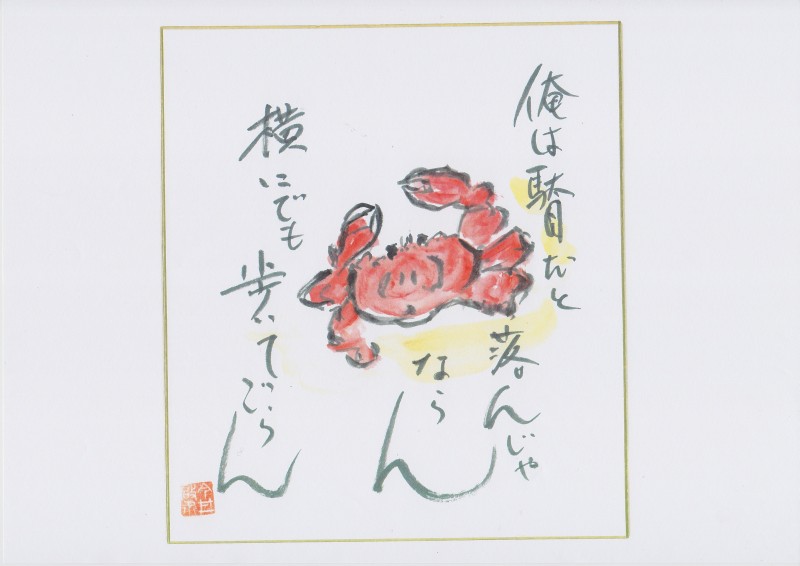 俺は駄目だと
落んじゃ
ならん
横にでも
歩いてごらん